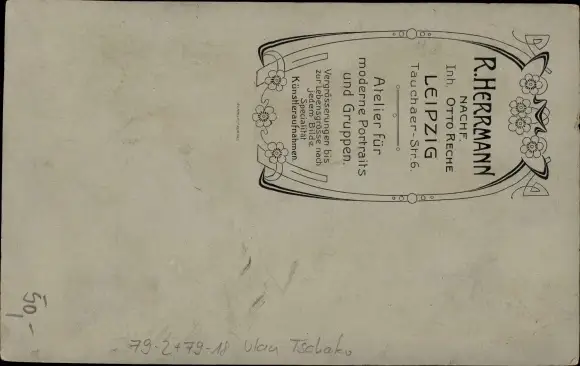 R. HERRMANN
NACHF.
Inh. OTTO RECHE
LEIPZIG
Tauchaer-Str. 6.
Atelier für
moderne Portraits
und Gruppen.
Vergrösserungen bis
zur Lebensgrösse nach
jedem Bilde.
Specialität
Künstleraufnahmen.
50,-
79-2+79-18 Ulan Tschako